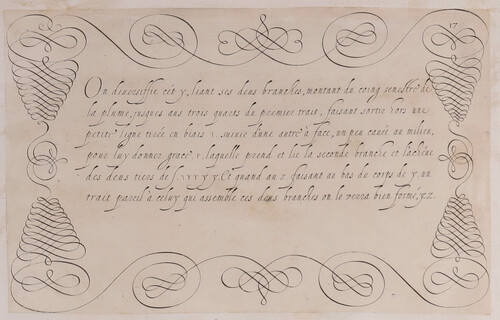 17
On diuersifie cét y, liant ses deus branches, montant du coing senestre de
la plume, jusques aus trois quarts du premier trait, faisant sortir hors une
petite ligne tirée en biais suiuie d'une autre à face, un peu cauée au milieu,
pour luy donner grace, laquelle prend et lie la seconde branche et l'achéue
des deus tiers de y y. Et quand au z. faisant au bas du corps de y. un
trait pareil à celuy qui assemble ces deus branches on le verra bien formé, z.